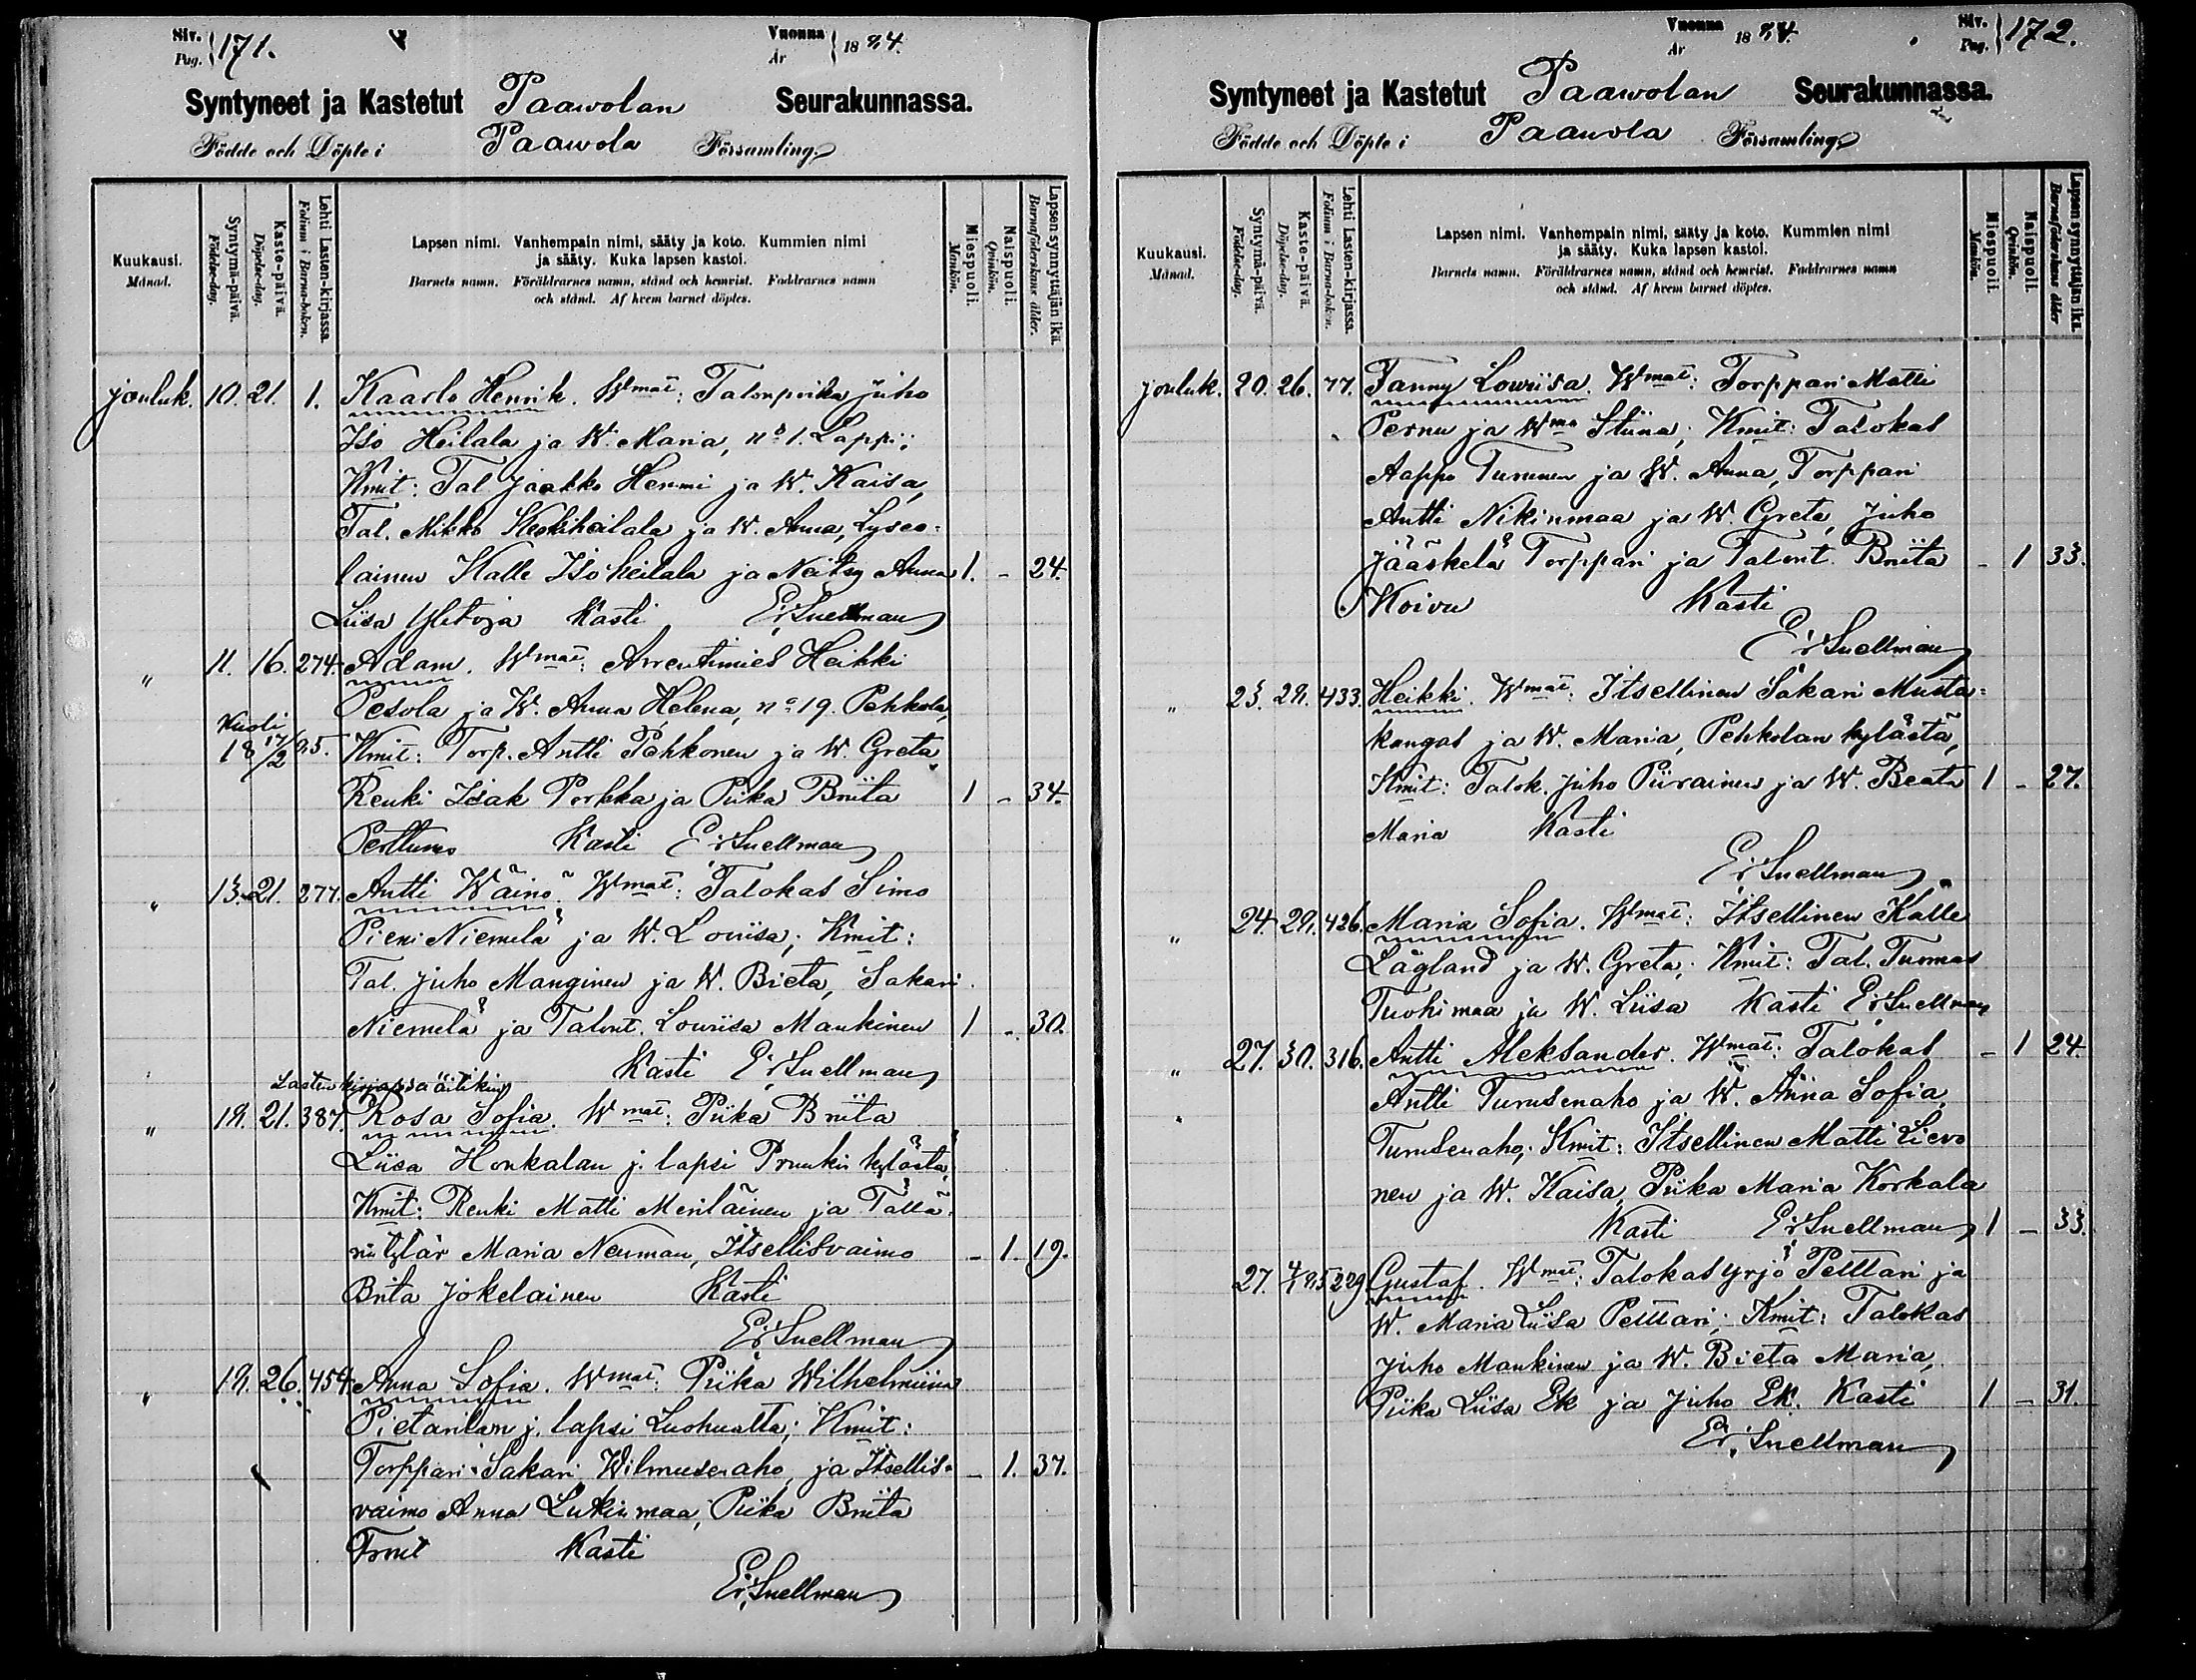 Siv.
Pag. 171.
Vuonna
År 1894.
Syntyneet ja Kastetut Paawolan Seurakunnassa.
Födde och Döpte i Paawola Församling
Kuukausi.
Månad.
Syntymä-päivä.
Födelse-dag.
Kaste-päivä.
Döpelse-dag.
Lehti Lasten-kirjassa.
Folium i Barna-boken.
Lapsen nimi. Vanhempain nimi, sääty ja koto. Kummien nimi
ja sääty. Kuka lapsen kastoi.
Barnets namn. Föräldrarnes namn, stånd och hemvist. Faddrarnes namn
och stånd. Af hvem barnet döptes.
Miespuoli.
Mankön.
Naispuoli.
Qvinkön.
Lapsen synnyttäjän ikä.
Barnaföderskans ålder.
jouluk. 10. 21. 1. Kaarlo Henrik. Wmat: Talonpoika Juho
Iso Heilala ja W. Maria, no 1. Lappi;
Kmit: Tal. Jaakko Hermi ja W. Kaisa,
Tal. Mikko Keskiheilala ja W. Anna, Lyseo-
lainen Kalle Isoheilala ja Neitsy Anna 1. - 24.
Liisa Ylitoja Kasti E. Snellman
" 11. 16. 274. Adam. Wmat: Arrentimies Heikki
Pesola ja W. Anna Helena, no 19. Pehkola,
Kuoli
18 17/2 95. Kmit: Torp. Antti Pehkonen ja W. Greta,
Renki Isak Porkka ja Piika Briita 1 - 34.
Perttunen Kasti E. Snellman
" 13. 21. 277. Antti Wäinö. Wmat: Talokas Simo
Pieni Niemelä ja W. Lowiisa; Kmit:
Tal. Juho Manginen ja W. Brieta, Sakari
Niemelä ja Talont. Lowiisa Mankinen 1 - 30.
Kasti E. Snellman
Lasten kirjassa äitikin
" 19. 21. 387. Rosa Sofia. Wmat: Piika Briita
Liisa Honkalan j. lapsi Pruukin kylästä,
Kmit: Renki Matti Meriläinen ja Tällä-
rin tytär Maria Neuman, Itsellisvaimo - 1. 19.
Brita Jokelainen Kasti
E. Snellman
" 19. 26. 454. Anna Sofia. Wmat: Piika Wilhelmiina
Pietarilan j. lapsi Luohualta; Kmit:
Torppari Sakari Wilmusenaho, ja Itsellis- - 1. 37.
vaimo Anna Lukinmaa, Piika Briita
Kasti
E. Snellman
Vuonna
År 1894.
Siv.
Pag. 172.
Syntyneet ja Kastetut Paawolan Seurakunnassa.
Födde och Döpte i Paawola Församling
Kuukausi.
Månad.
Syntymä-päivä.
Födelse-dag.
Kaste-päivä.
Döpelse-dag.
Lehti Lasten-kirjassa.
Folium i Barna-boken.
Lapsen nimi. Vanhempain nimi, sääty ja koto. Kummien nimi
ja sääty. Kuka lapsen kastoi.
Barnets namn. Föräldrarnes namn, stånd och hemvist. Faddrarnes namn
och stånd. Af hvem barnet döptes.
Miespuoli.
Mankön.
Naispuoli.
Qvinkön.
Lapsen synnyttäjän ikä.
Barnaföderskans ålder
jouluk. 20. 26. 77. Fanny Lowiisa. Wmat: Torppari Matti
Pernu ja Wmo Stiina; Kmit: Talokas
Aappo Tuunen ja W. Anna, Torppari
Antti Nikinmaa ja W. Greta, Juho
Jääskelä Torppari ja Talont. Briita - 1 33.
Koivu Kasti
E. Snellman
" 23. 29. 433. Heikki. Wmat: Itsellinen Sakari Musta-
kangas ja W. Maria, Pehkolan kylästä,
Kmit: Talok. Juho Piirainen ja W. Beata 1 - 27.
Maria Kasti
E. Snellman
" 24. 29. 426. Maria Sofia. Wmat: Itsellinen Kalle
Lågland ja W. Greta; Kmit: Tal. Tuomas
Tuohimaa ja W. Liisa Kasti E. Snellman
" 27. 30. 316. Antti Aleksander. Wmat: Talokas - 1 24.
Antti Turusenaho ja W. Anna Sofia
Turusenaho; Kmit: Itsellinen Matti Lievo
nen ja W. Kaisa, Piika Maria Korkala
Kasti E. Snellman 1 - 33.
27. 4/1 95 229 Gustaf. Wmat: Talokas Yrjö Pelttari ja
W. Maria Liisa Pelttari; Kmit: Talokas
Juho Mankinen ja W. Brieta Maria,
Piika Liisa Ek ja Juho Ek. Kasti 1 - 31.
E. Snellman